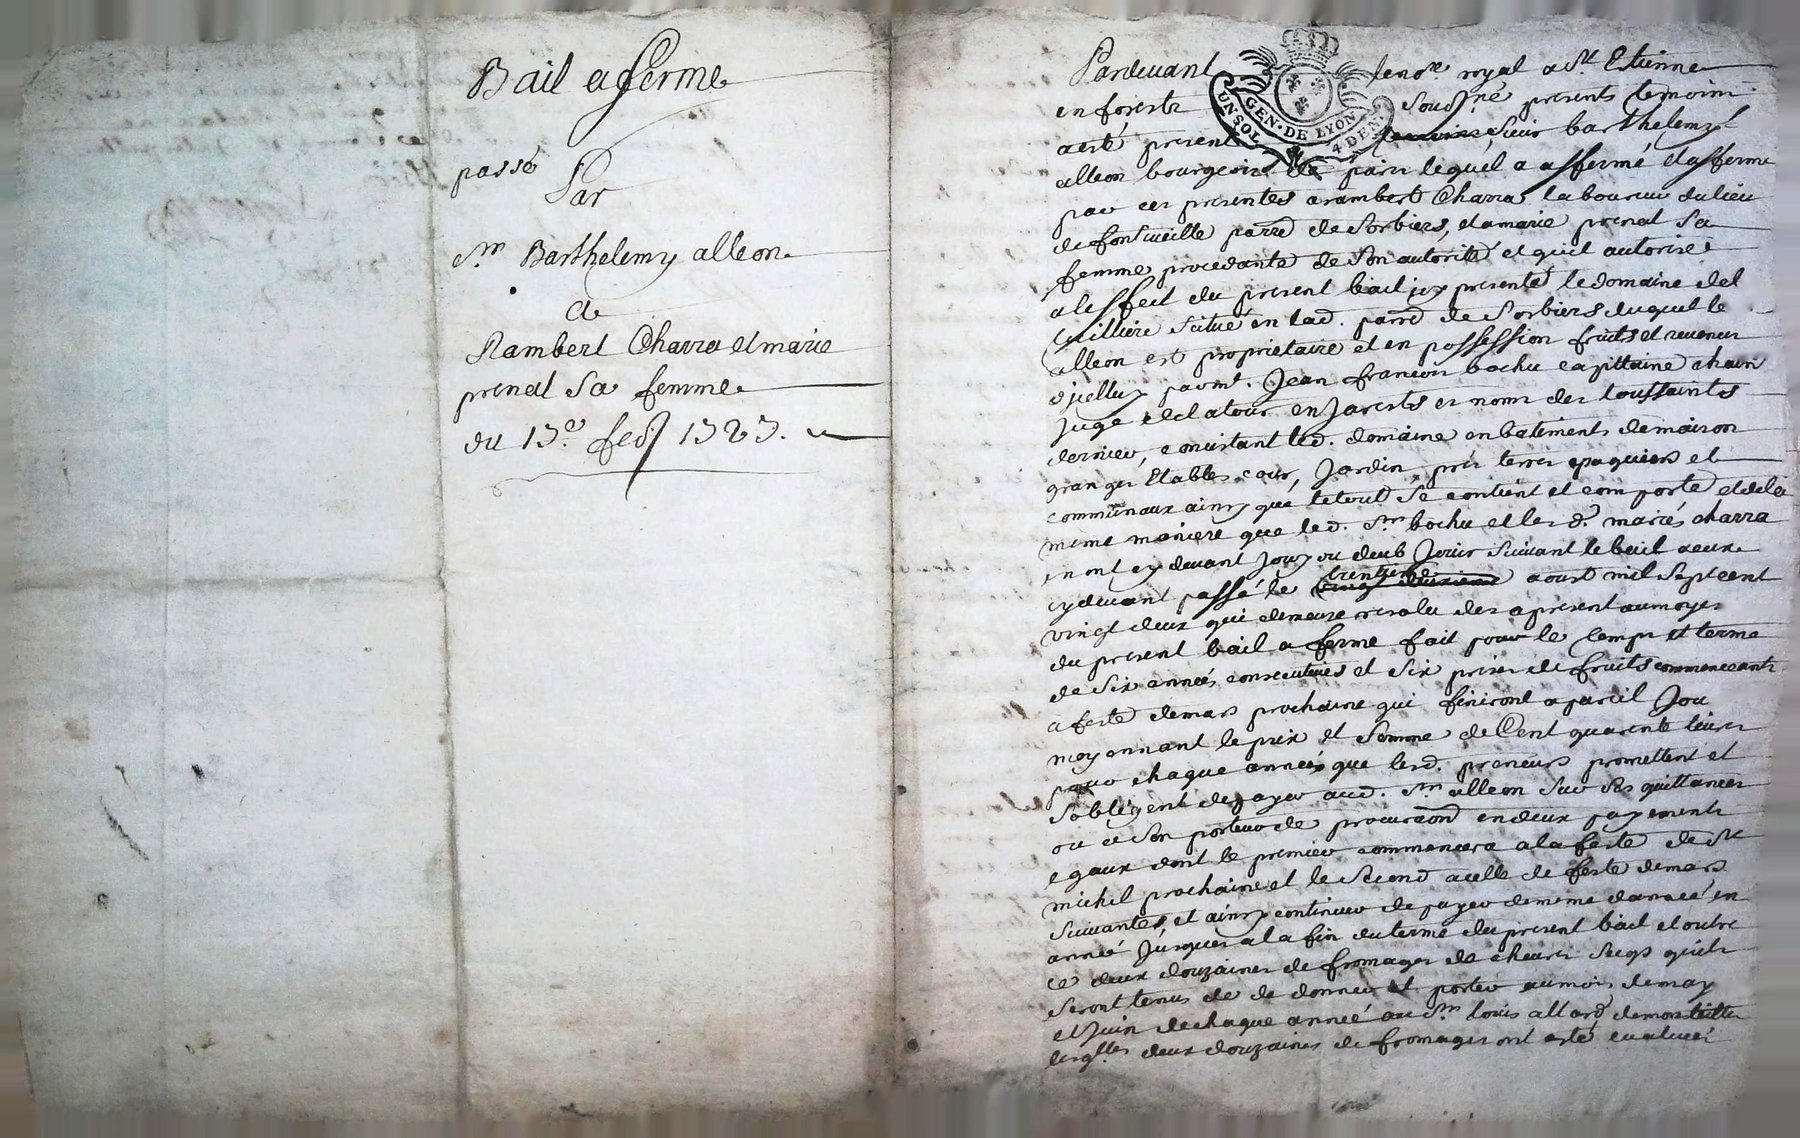 Bail a ferme
passé
Par
Sr. Barthelemy alleon
a
Rambert Charra et marie
prenat Sa femme
du 13e feb. 1723.
UN SOL GEN. DE LYON 4 DEN
Pardevant le nore royal a St Etienne
en forestz Sousné presents temoins
a esté present Sieur barthelemy
alleon bourgeois de paris lequel a affermé et afferme
par ces presentes a rambert Charra laboureur du lieu
de fontvieille parre de Sorbiers, et a marie prenat Sa
femme procedante de Son autorité et quil autorise
a leffect du present bail icy presente le domaine del
situé en lad. parre de Sorbiers duquel le
alleon est proprietaire et en possession fruits et revenus
dicelluy par mr. Jean francois bochu capittaine chain
Juge de latour en Jarests es noms des toussaints
dernier, consistant led. domaine en batiments de maison
granges Etables cour, Jardin prés terres paquiers et
communaux ainsy que letout Se contient et comporte et de la
meme maniere que led. Sr. bochu et les d. mariés charra
en ont cy devant Jouy ou deub Jouir Suivant le bail a eux
cydevant passé le trentieme aoust mil Sept cent
vingt deux qui demeure resolu des apresent aumoyen
du present bail a ferme fait pour le temps et terme
de Six années consecutives et Six prises de fruits commenceants
a feste demars prochaine qui finiront a pareil Jour
moyennant le prix et Somme de Cent quarente livres
pour chaque année que lesd. preneurs promettent et
Soblegent de payer aud. Sr. alleon Sur Ses quittances
ou a Son porteur de procuraon en deux payements
egaux dont le premier commencera a la feste de St
michel prochaine et le Second a celle de feste demars
Suivantes, et ainsy continuer de payer de meme dannée en
année Jusques a la fin du terme du present bail et outre
ce deux douzaines de fromages de chevres Secqs quils
Seront tenus de de donner et porter au mois de may
et Juin de chaque année au Sr. louis allard de
lesqlles deux douzaines de fromages ont esté evaluées